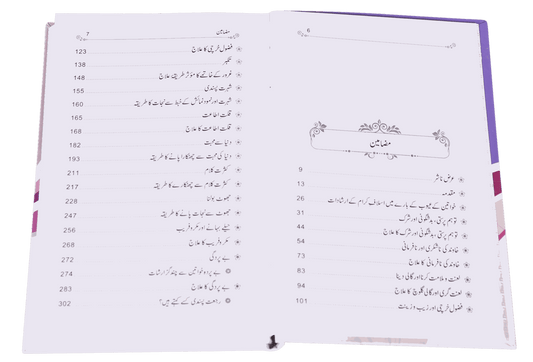 6
مضامین
عرض ناشر 9
مقدمہ 13
خواتین کے عیوب کے بارے میں اسلاف کرام کے ارشادات 26
توہم پرستی، بدشگونی اور شرک 31
توہم پرستی، بدشگونی اور شرک کا علاج 44
خاوند کی ناشکری اور نافرمانی 54
خاوند کی نافرمانی کا علاج 73
لعنت و ملامت کرنا اور گالی دینا 83
لعنت گری اور گالی گلوچ کا علاج 94
فضول خرچی اور زیب و زینت 101
مضامین 7
فضول خرچی کا علاج 123
تکبر 138
غرور کے خاتمے کا مؤثر طریقۂ علاج 148
شہرت پسندی 155
شہرت اور نمود و نمائش کے خبط سے نجات کا طریقہ 160
قلت اطاعت 165
قلت اطاعت کا علاج 168
دنیا سے محبت 182
دنیا کی محبت سے چھٹکارا پانے کا طریقہ 193
کثرت کلام 211
کثرت کلام سے چھٹکارے کا طریقہ 217
جھوٹ بولنا 228
جھوٹ سے نجات پانے کا طریقہ 247
حیلے بہانے اور مکر و فریب 256
مکر و فریب کا علاج 268
بے پردگی 272
بے پردہ خواتین سے چند گزارشات 274
بے پردگی کا علاج 283
رجعت پسندی کسے کہتے ہیں؟ 302